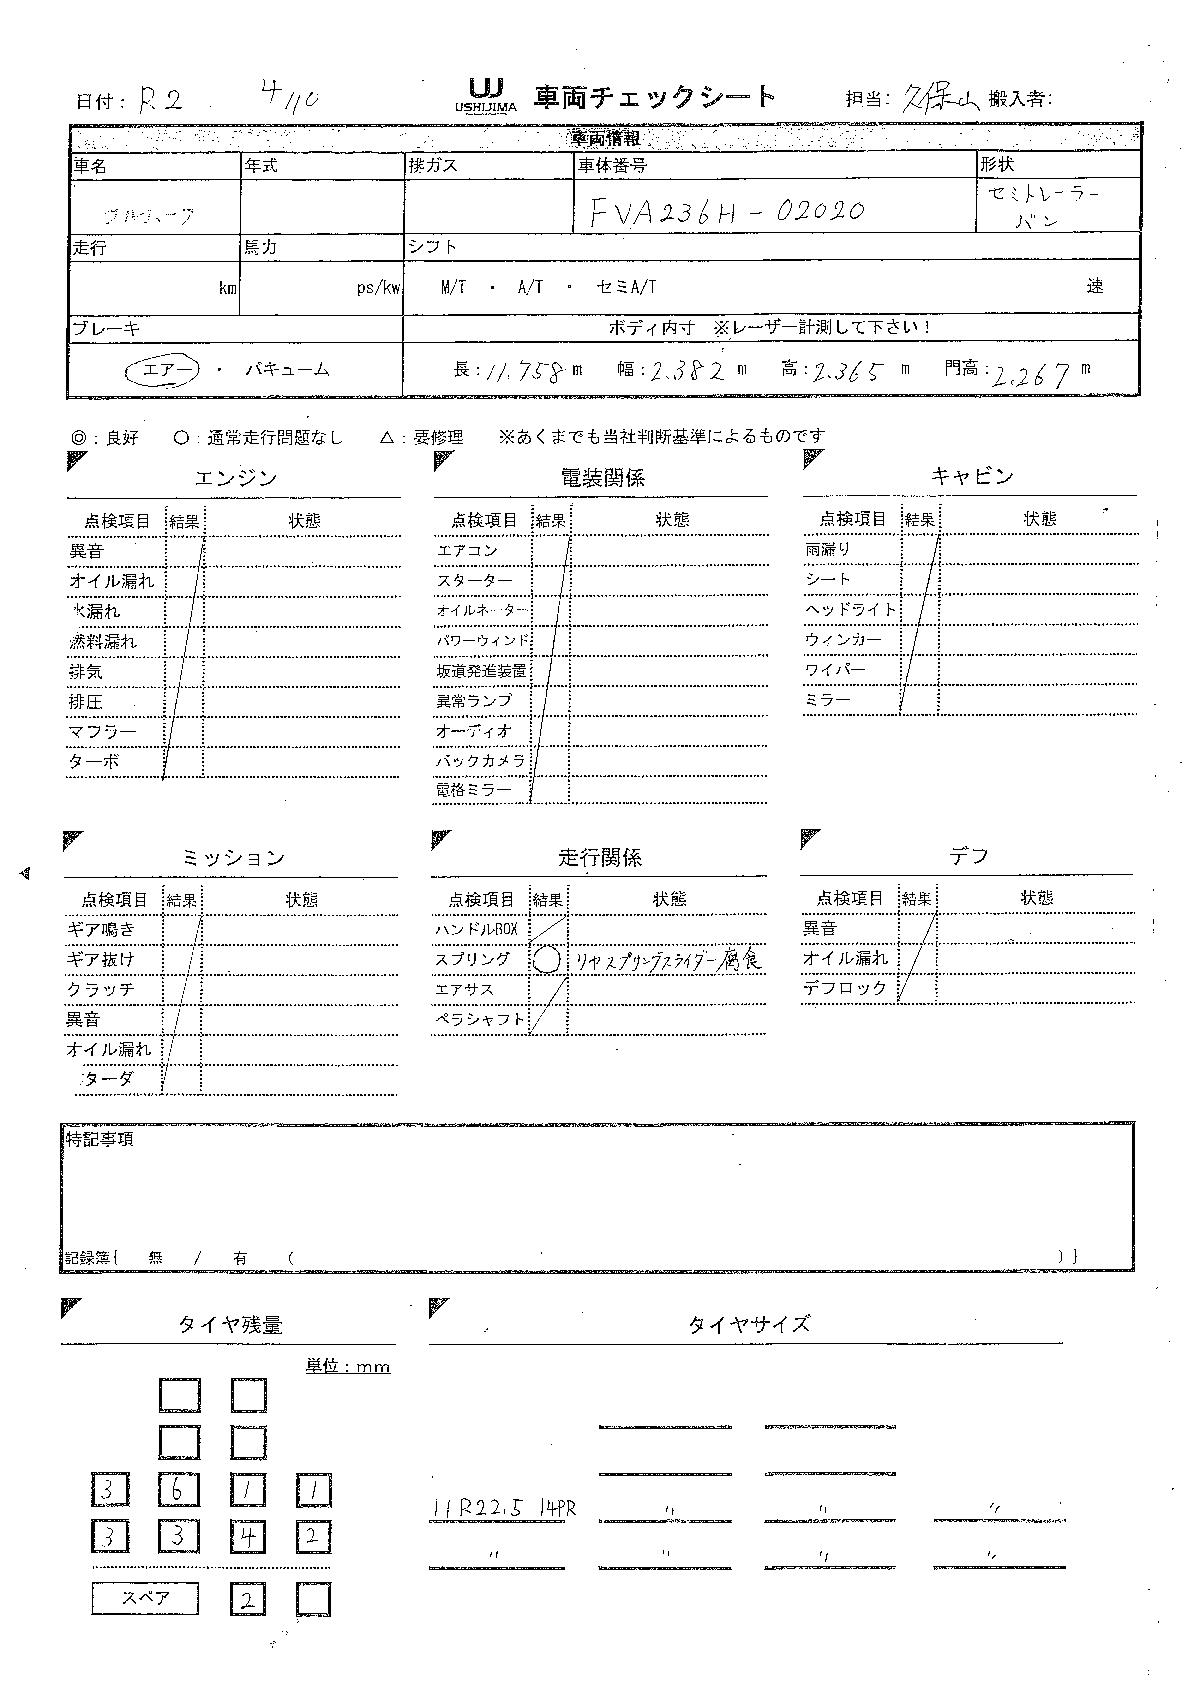 日付: R2 4/10 USHIJIMA 車両チェックシート 担当: 久保山 搬入者:
車両情報
車名 年式 排ガス 車体番号 形状
FVA236H-02020 セミトレーラー
バン
走行 馬力 シフト
km ps/kw M/T ・ A/T ・ セミA/T 速
ブレーキ ボディ内寸 ※レーザー計測して下さい!
エアー ・ バキューム 長:11.758m 幅:2.382m 高:2.365m 門高:2.267m
◎:良好 〇:通常走行問題なし △:要修理 ※あくまでも当社判断基準によるものです
エンジン
点検項目 結果 状態
異音
オイル漏れ
水漏れ
燃料漏れ
排気
排圧
マフラー
ターボ
電装関係
点検項目 結果 状態
エアコン
スターター
オイルネーター
パワーウィンド
坂道発進装置
異常ランプ
オーディオ
バックカメラ
電格ミラー
キャビン
点検項目 結果 状態
雨漏り
シート
ヘッドライト
ウィンカー
ワイパー
ミラー
ミッション
点検項目 結果 状態
ギア鳴き
ギア抜け
クラッチ
異音
オイル漏れ
ターダ
走行関係
点検項目 結果 状態
ハンドルBOX
スプリング 〇 リヤスプリングスライダー腐食
エアサス
ペラシャフト
デフ
点検項目 結果 状態
異音
オイル漏れ
デフロック
特記事項
記録簿{ 無 / 有 ( )}
タイヤ残量
単位:mm
3 6 1 1
3 3 4 2
スペア 2
タイヤサイズ
11R22.5 14PR 〃 〃 〃
〃 〃 〃 〃